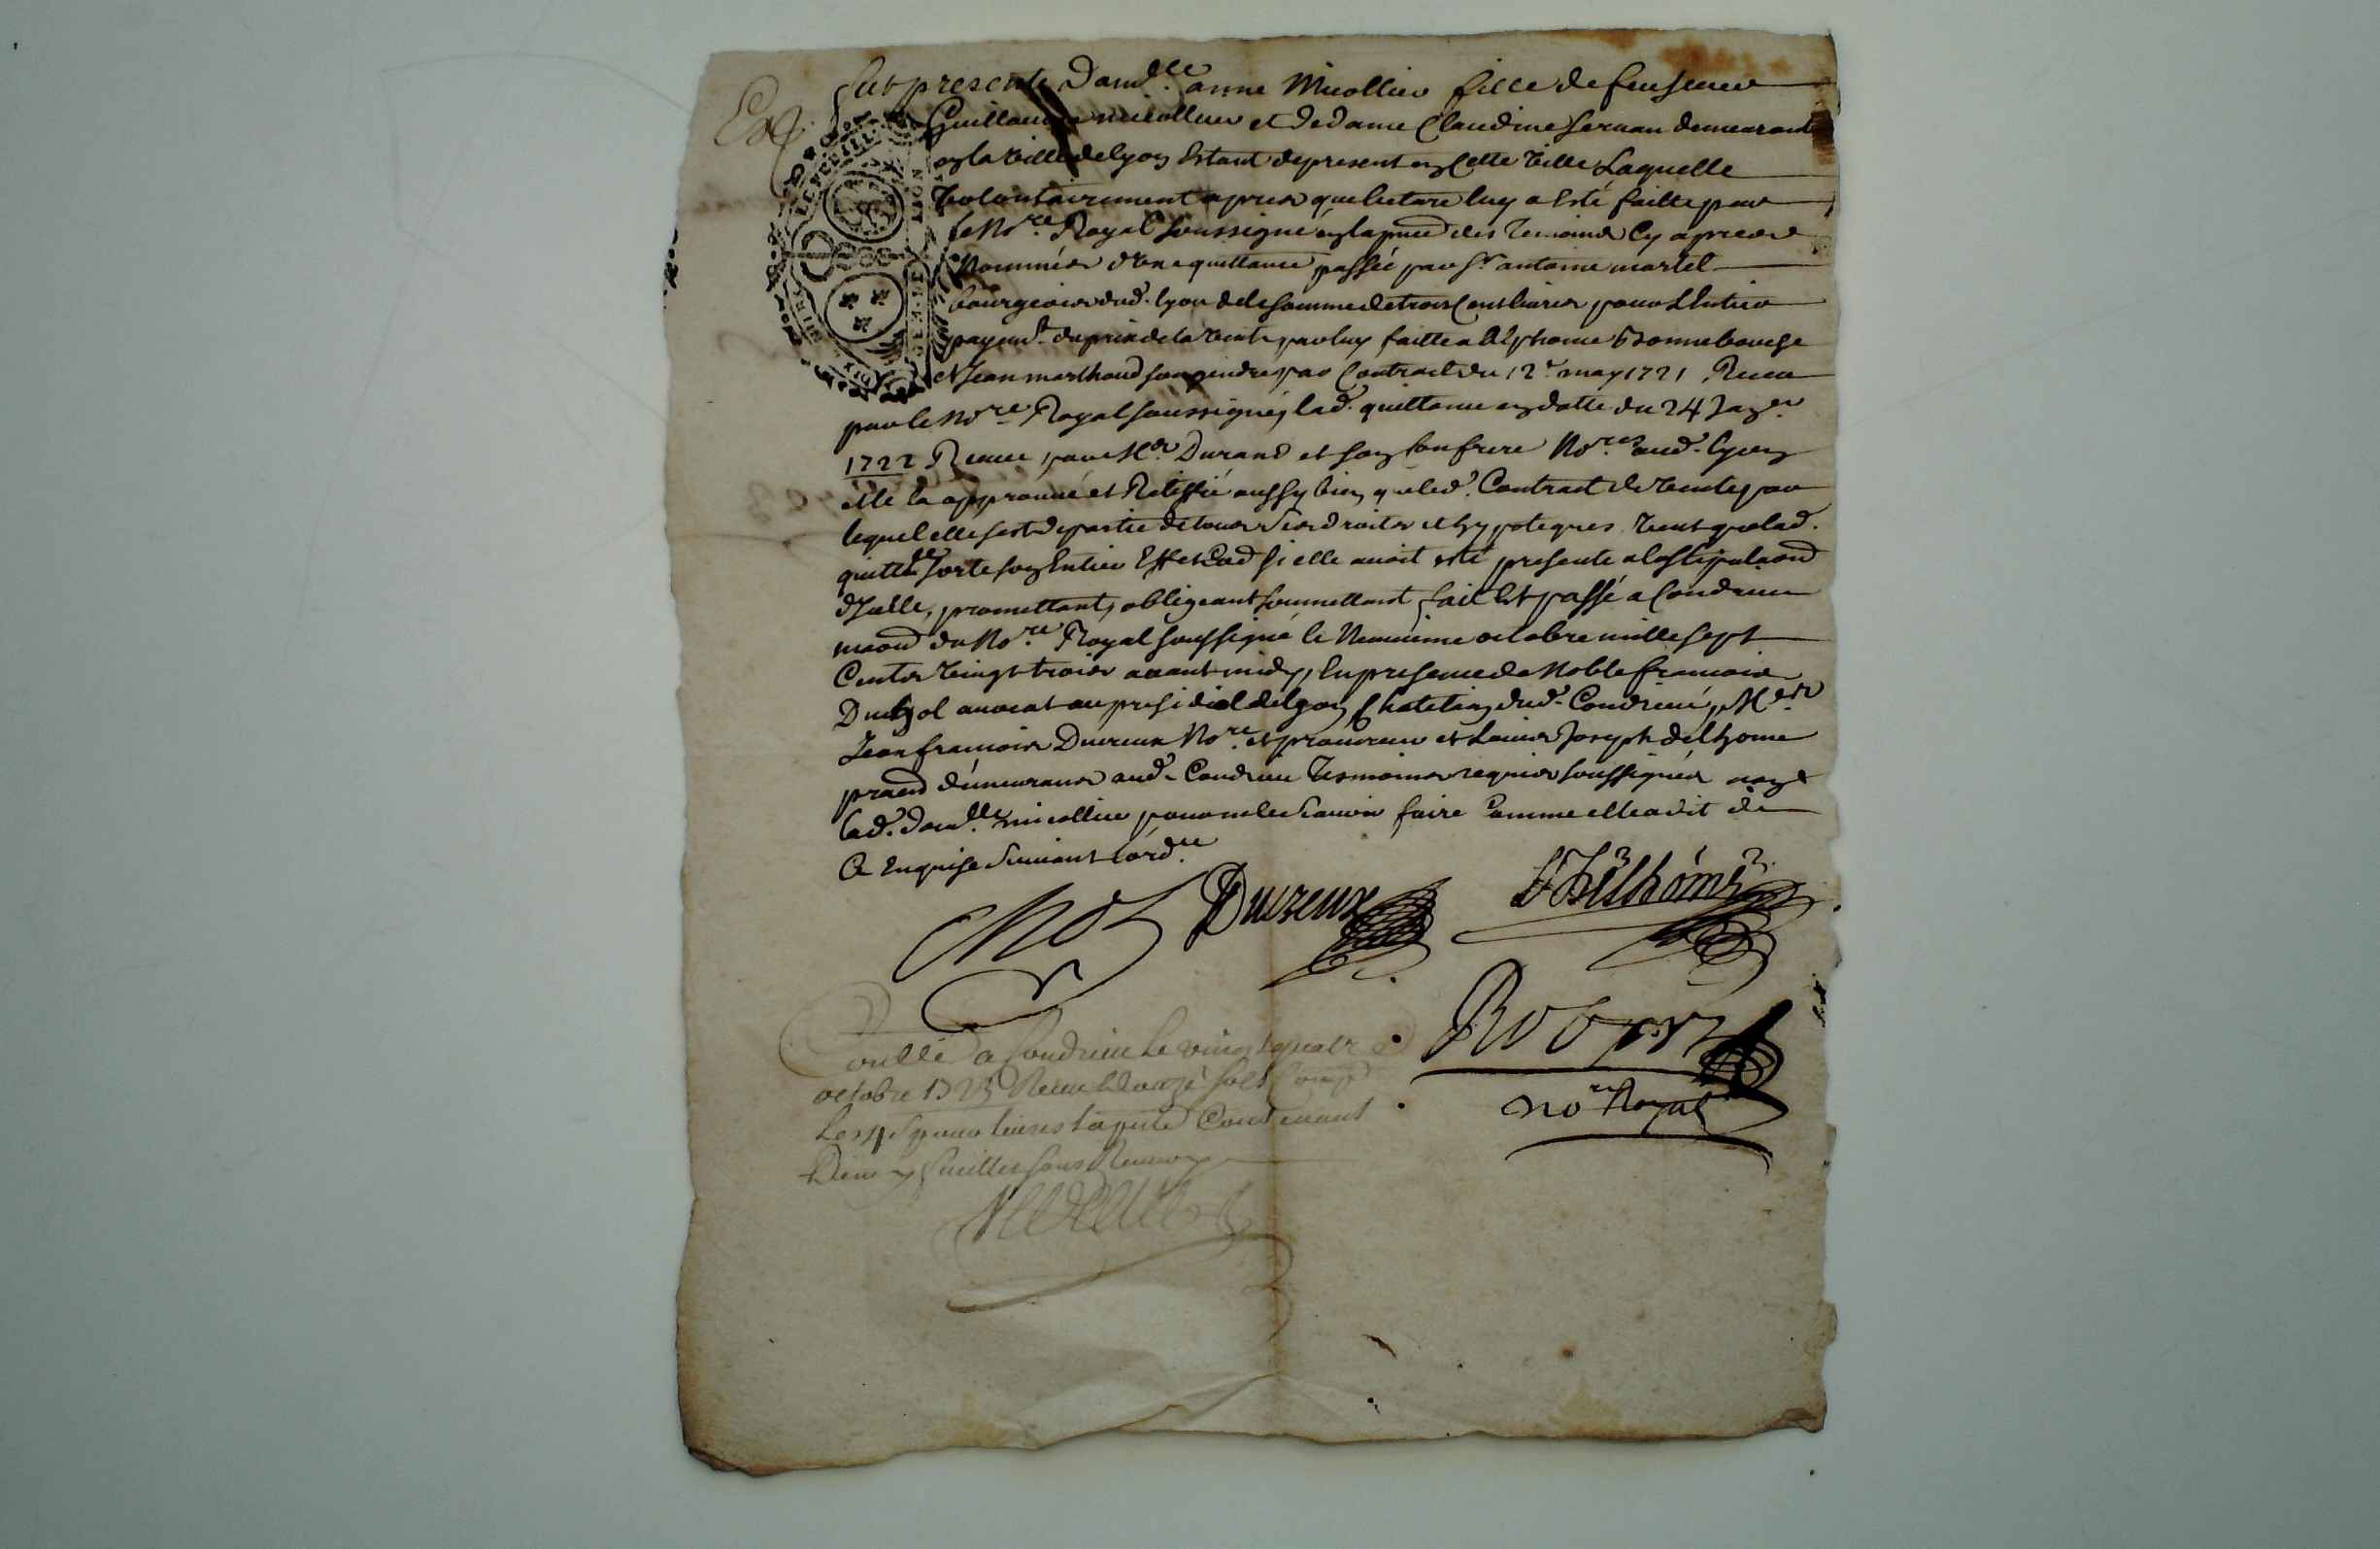 Ex
fut presente Dam.lle anne Micollier fille de feu sieur
Guillaume micollier et de dame Claudine servan demeurant
en la ville de lyon Estant de present en Cette ville Laquelle
volontairement apres que lecture luy a Esté faitte par
le No.re Royal soussigné en la pnce des temoins Cy apres
Nommés d'une quittance passée par Sr antoine martel
bourgeois dud. lyon de la somme de trois Cent livres pour l'Entier
payem.t du prix de la vente par luy faitte a Alphonse Bonnebouche
et Jean marthoud son gendre par Contract du 12.e may 1721 Receu
par le No.re Royal soussigné, lad. quittance en datte du 24 Janer
1722 Receue par Me Durand et son Confrere No.res aud. lyon
elle la approuvé et Ratiffié aussy bien que led. Contract de vente par
lequel elle s'est departie de tous ses droits et hypoteques veut que lad.
quittce sorte son Entier Effet Co͞e si elle avoit esté presente a la stipula͞on
d'Icelle, promettant, obligeant soumettant fait Et passé a Condrieu
ma͞on du No.re Royal soussigné le Neuvieme octobre mille sept
Cents vingt trois avant midy, En presence de Noble francois
avocat au presidial de lyon Chatelain dud. Condrieu, Me
Jean francois Ducreux No.re et procureur et Louis Joseph delhome
demeurans aud. Condrieu tesmoins requis soussignés non
lad. dam.lle micollier pour ne le scavoir faire Comme elle a dit de
Ce Enquise suivant l'ord.ce
Ducreux
Delhome
No.re Royal
Conllé a Condrieu le vingt quatre
octobre 1723 Receu douze sols